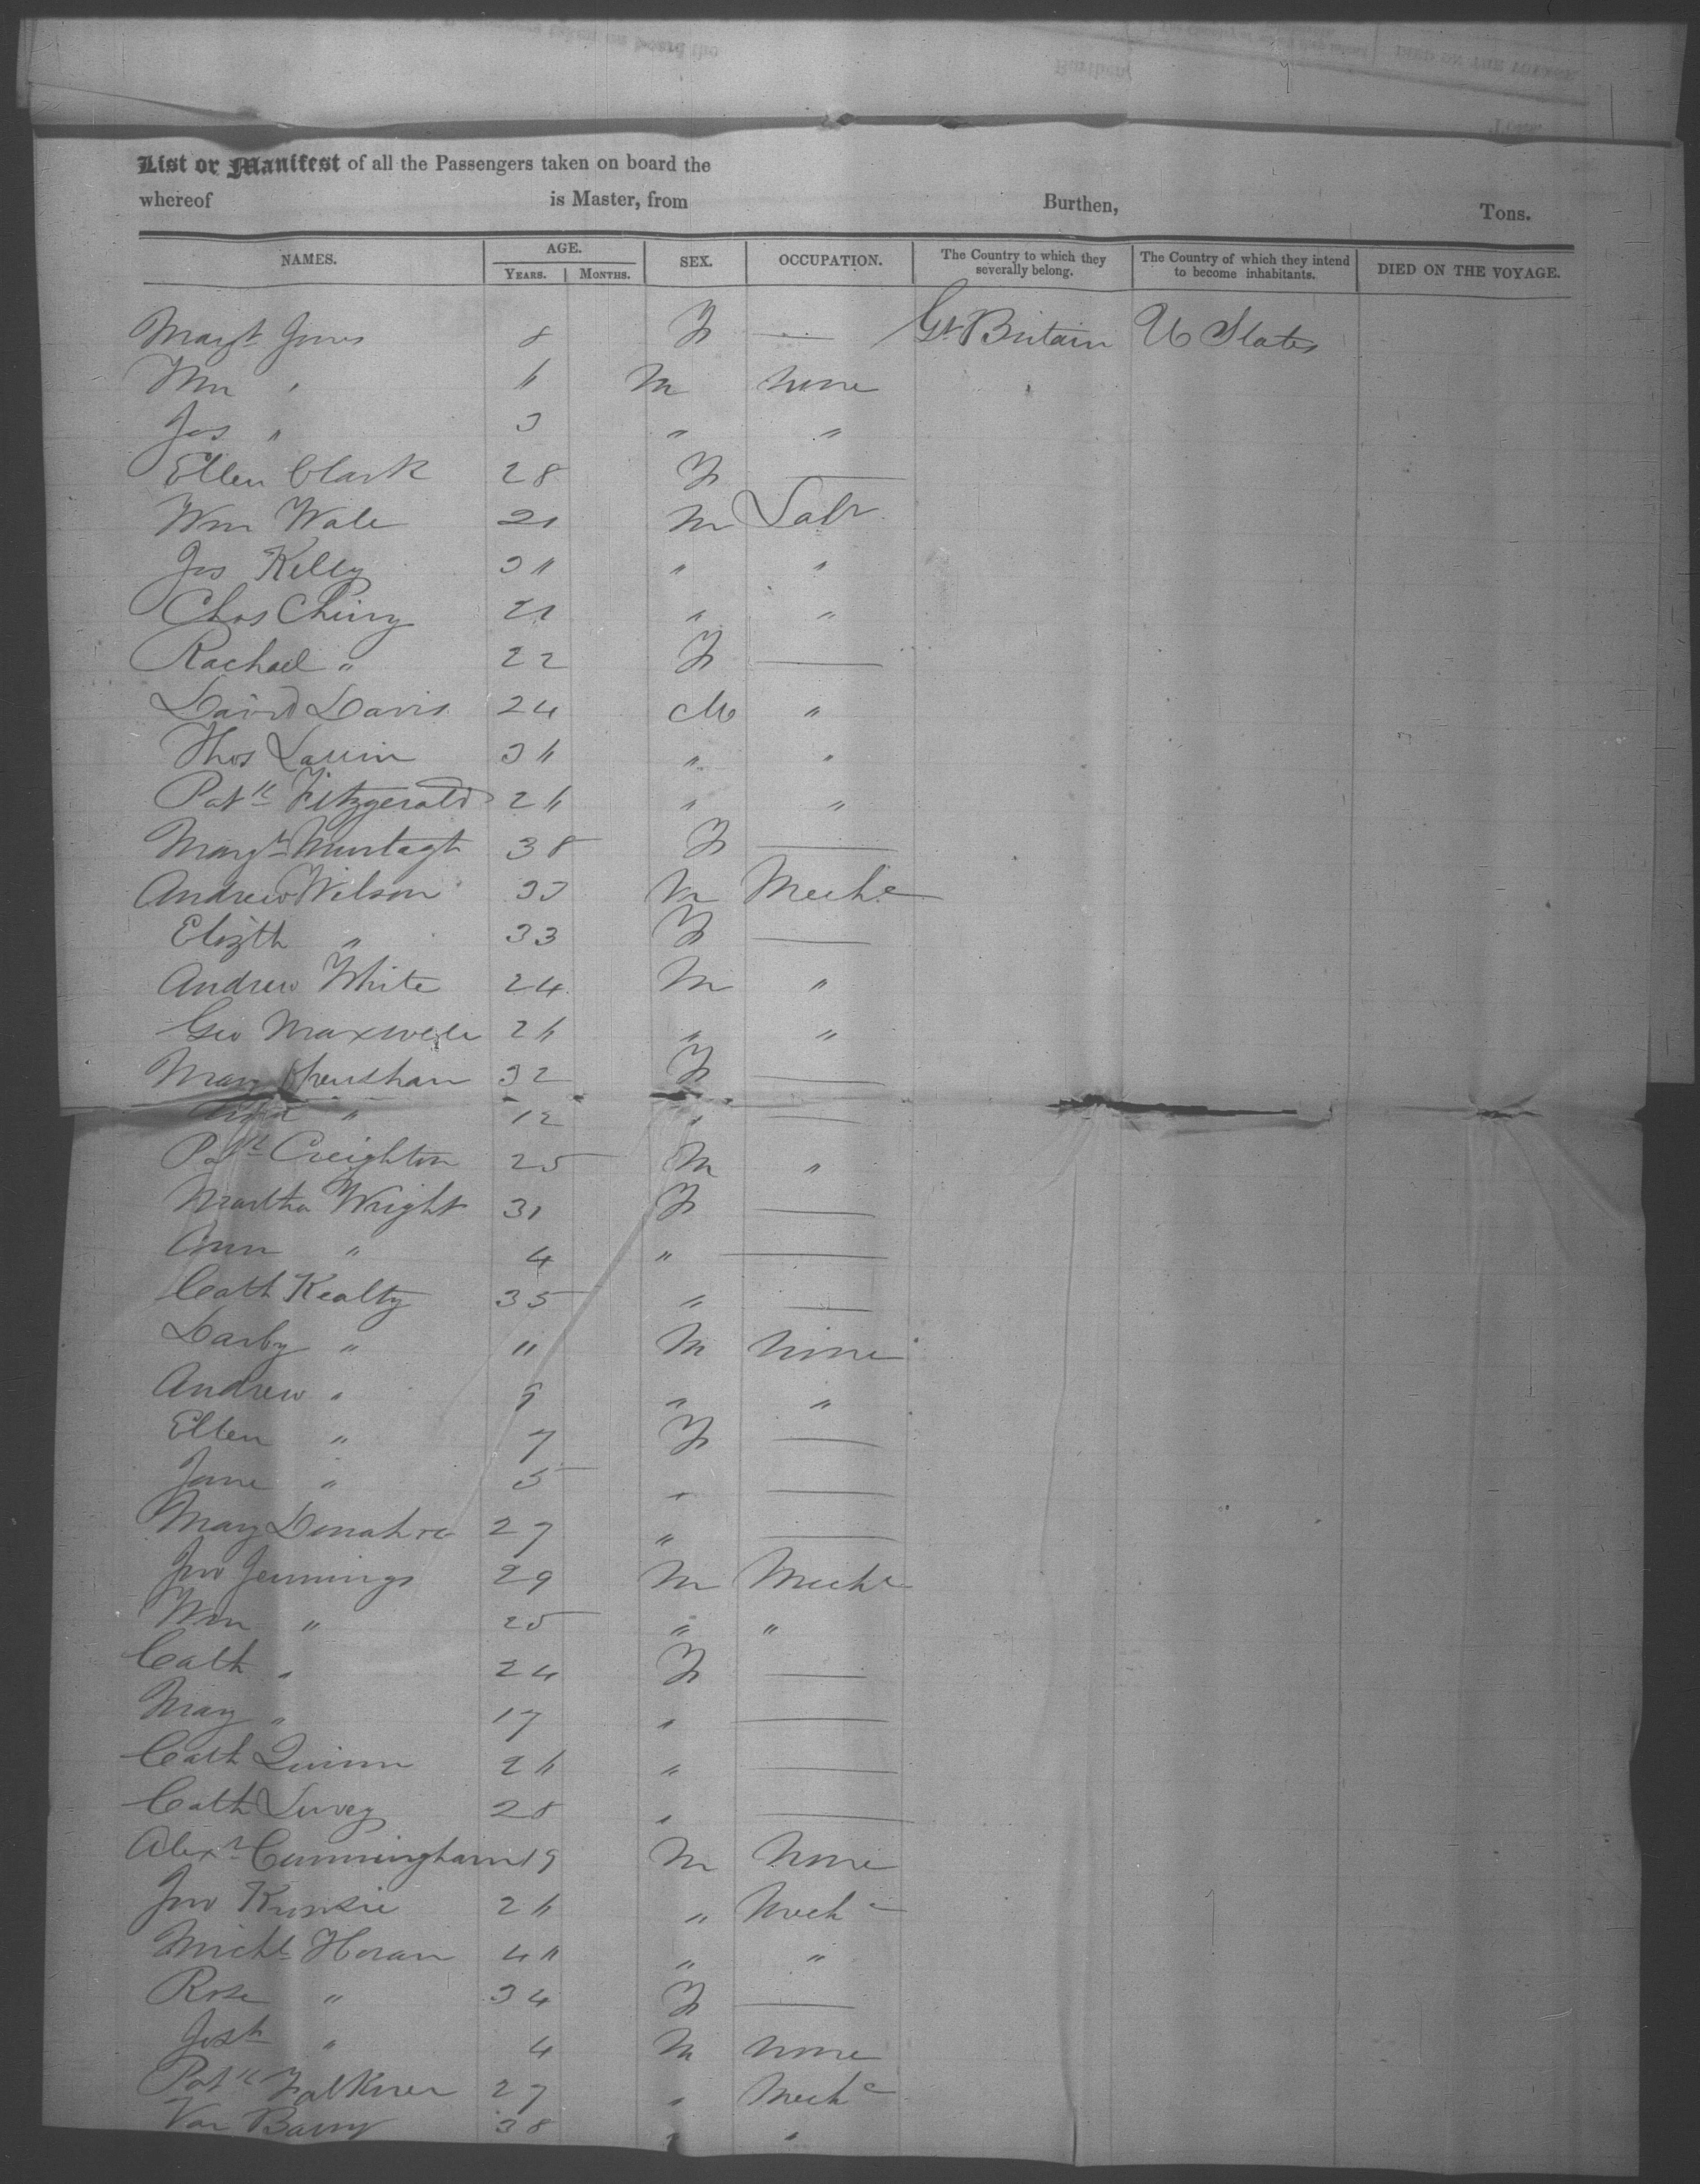 List or Manifest of all the Passengers taken on board the
whereof is Master, from Burthen, Tons.
NAMES. AGE. SEX. OCCUPATION. The Country to which they severally belong. The Country of which they intend to become inhabitants. DIED ON THE VOYAGE.
YEARS. MONTHS.
Margt Jones 8 F — Gt Britain U States
Wm " 6 M none
Jas " 3 " "
Ellen Clark 28 F —
Wm Wale 21 M Labr
Jas Kelly 36 " "
Chas 21 " "
Rachael " 22 F —
David Davis 24 M "
Thos 36 " "
Patk Fitzgerald 26 " "
Margt Murtagh 38 F —
Andrew Wilson 33 M Mechc
Elizth " 33 F —
Andrew White 24 M "
Geo Maxwell 26 " "
Mary 32 F —
" 12 " —
Patk Creighton 25 M "
Martha Wright 31 F —
Ann " 4 " —
Cath Kealty 35 " —
Darby " 11 M none
Andrew " 9 " "
Ellen " 7 F —
Jane " 5 " —
Mary Donahue 27 " —
Jno Jennings 29 M Mechc
Wm " 25 " "
Cath " 24 F —
Mary " 17 " —
Cath Quinn 26 " —
Cath 28 " —
Alexr Cunningham 19 M none
Jno 26 " Mechc
Michl Horan 40 " "
Rose " 34 F —
Josh " 4 M none
Patk Falkner 27 " Mechc
Barry 38 " "